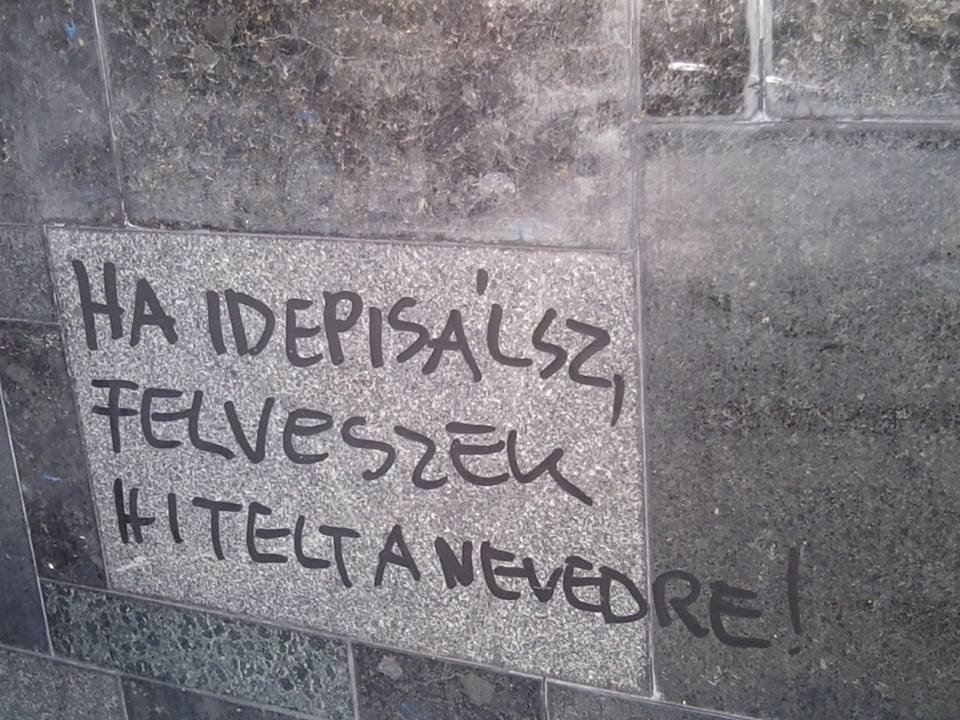 HA IDEPISÁLSZ,
FELVESZEK
HITELT A NEVEDRE!